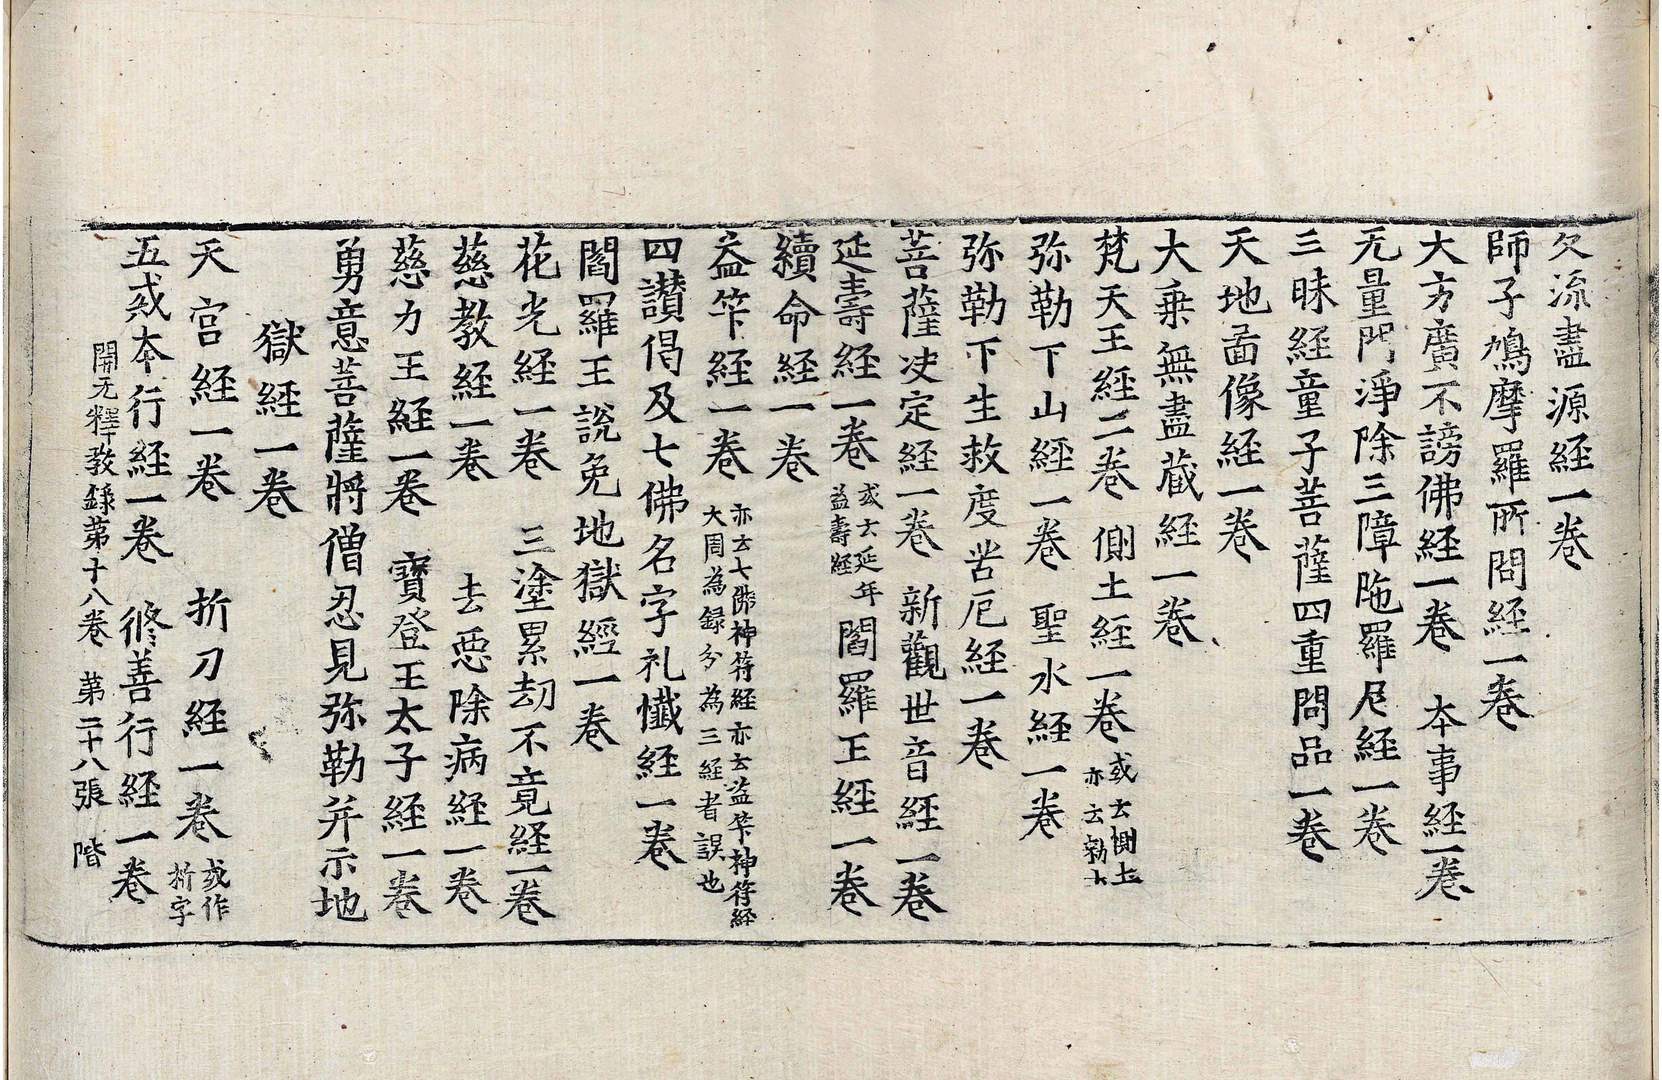 欠流盡源経一卷
師子鳩摩羅所問経一卷
大方廣不謗佛経一卷 本事経一卷
无量門淨除三障陁羅尼経一卷
三昧経童子菩薩四重問品一卷
天地啚像経一卷
大乗無盡蔵経一卷
梵天王経二卷 側土経一卷 或云惻土 亦云勑土
弥勒下山経一卷 聖水経一卷
弥勒下生救度苦厄経一卷
菩薩决定経一卷 新觀世音経一卷
延壽経一卷 或云延年 益壽経 閻羅王経一卷
續命経一卷
益筭経一卷 亦云七佛神符経亦云益筭神符経 大周為録分為三経者誤也
四讃偈及七佛名字礼懴経一卷
閻羅王說免地獄經一卷
花光経一卷 三塗累刧不竟経一卷
慈教経一卷 去惡除病経一卷
慈力王経一卷 寶登王太子経一卷
勇意菩薩將僧忍見弥勒并示地
獄経一卷
天宮経一卷 折刀経一卷 或作 析字
五戒本行経一卷 修善行経一卷
開元釋教録第十八卷 第二十八張 階